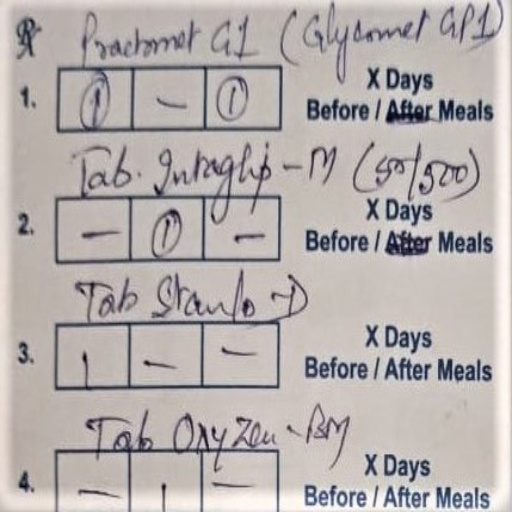 ℞ Practomet G1 (Glycomet GP1)
1. 1 - 1 X Days
Before / After Meals
Tab. - M (50/500)
2. - 1 - X Days
Before / After Meals
Tab - D
3. 1 - - X Days
Before / After Meals
Tab Oxyzen - BM
4. - 1 - X Days
Before / After Meals